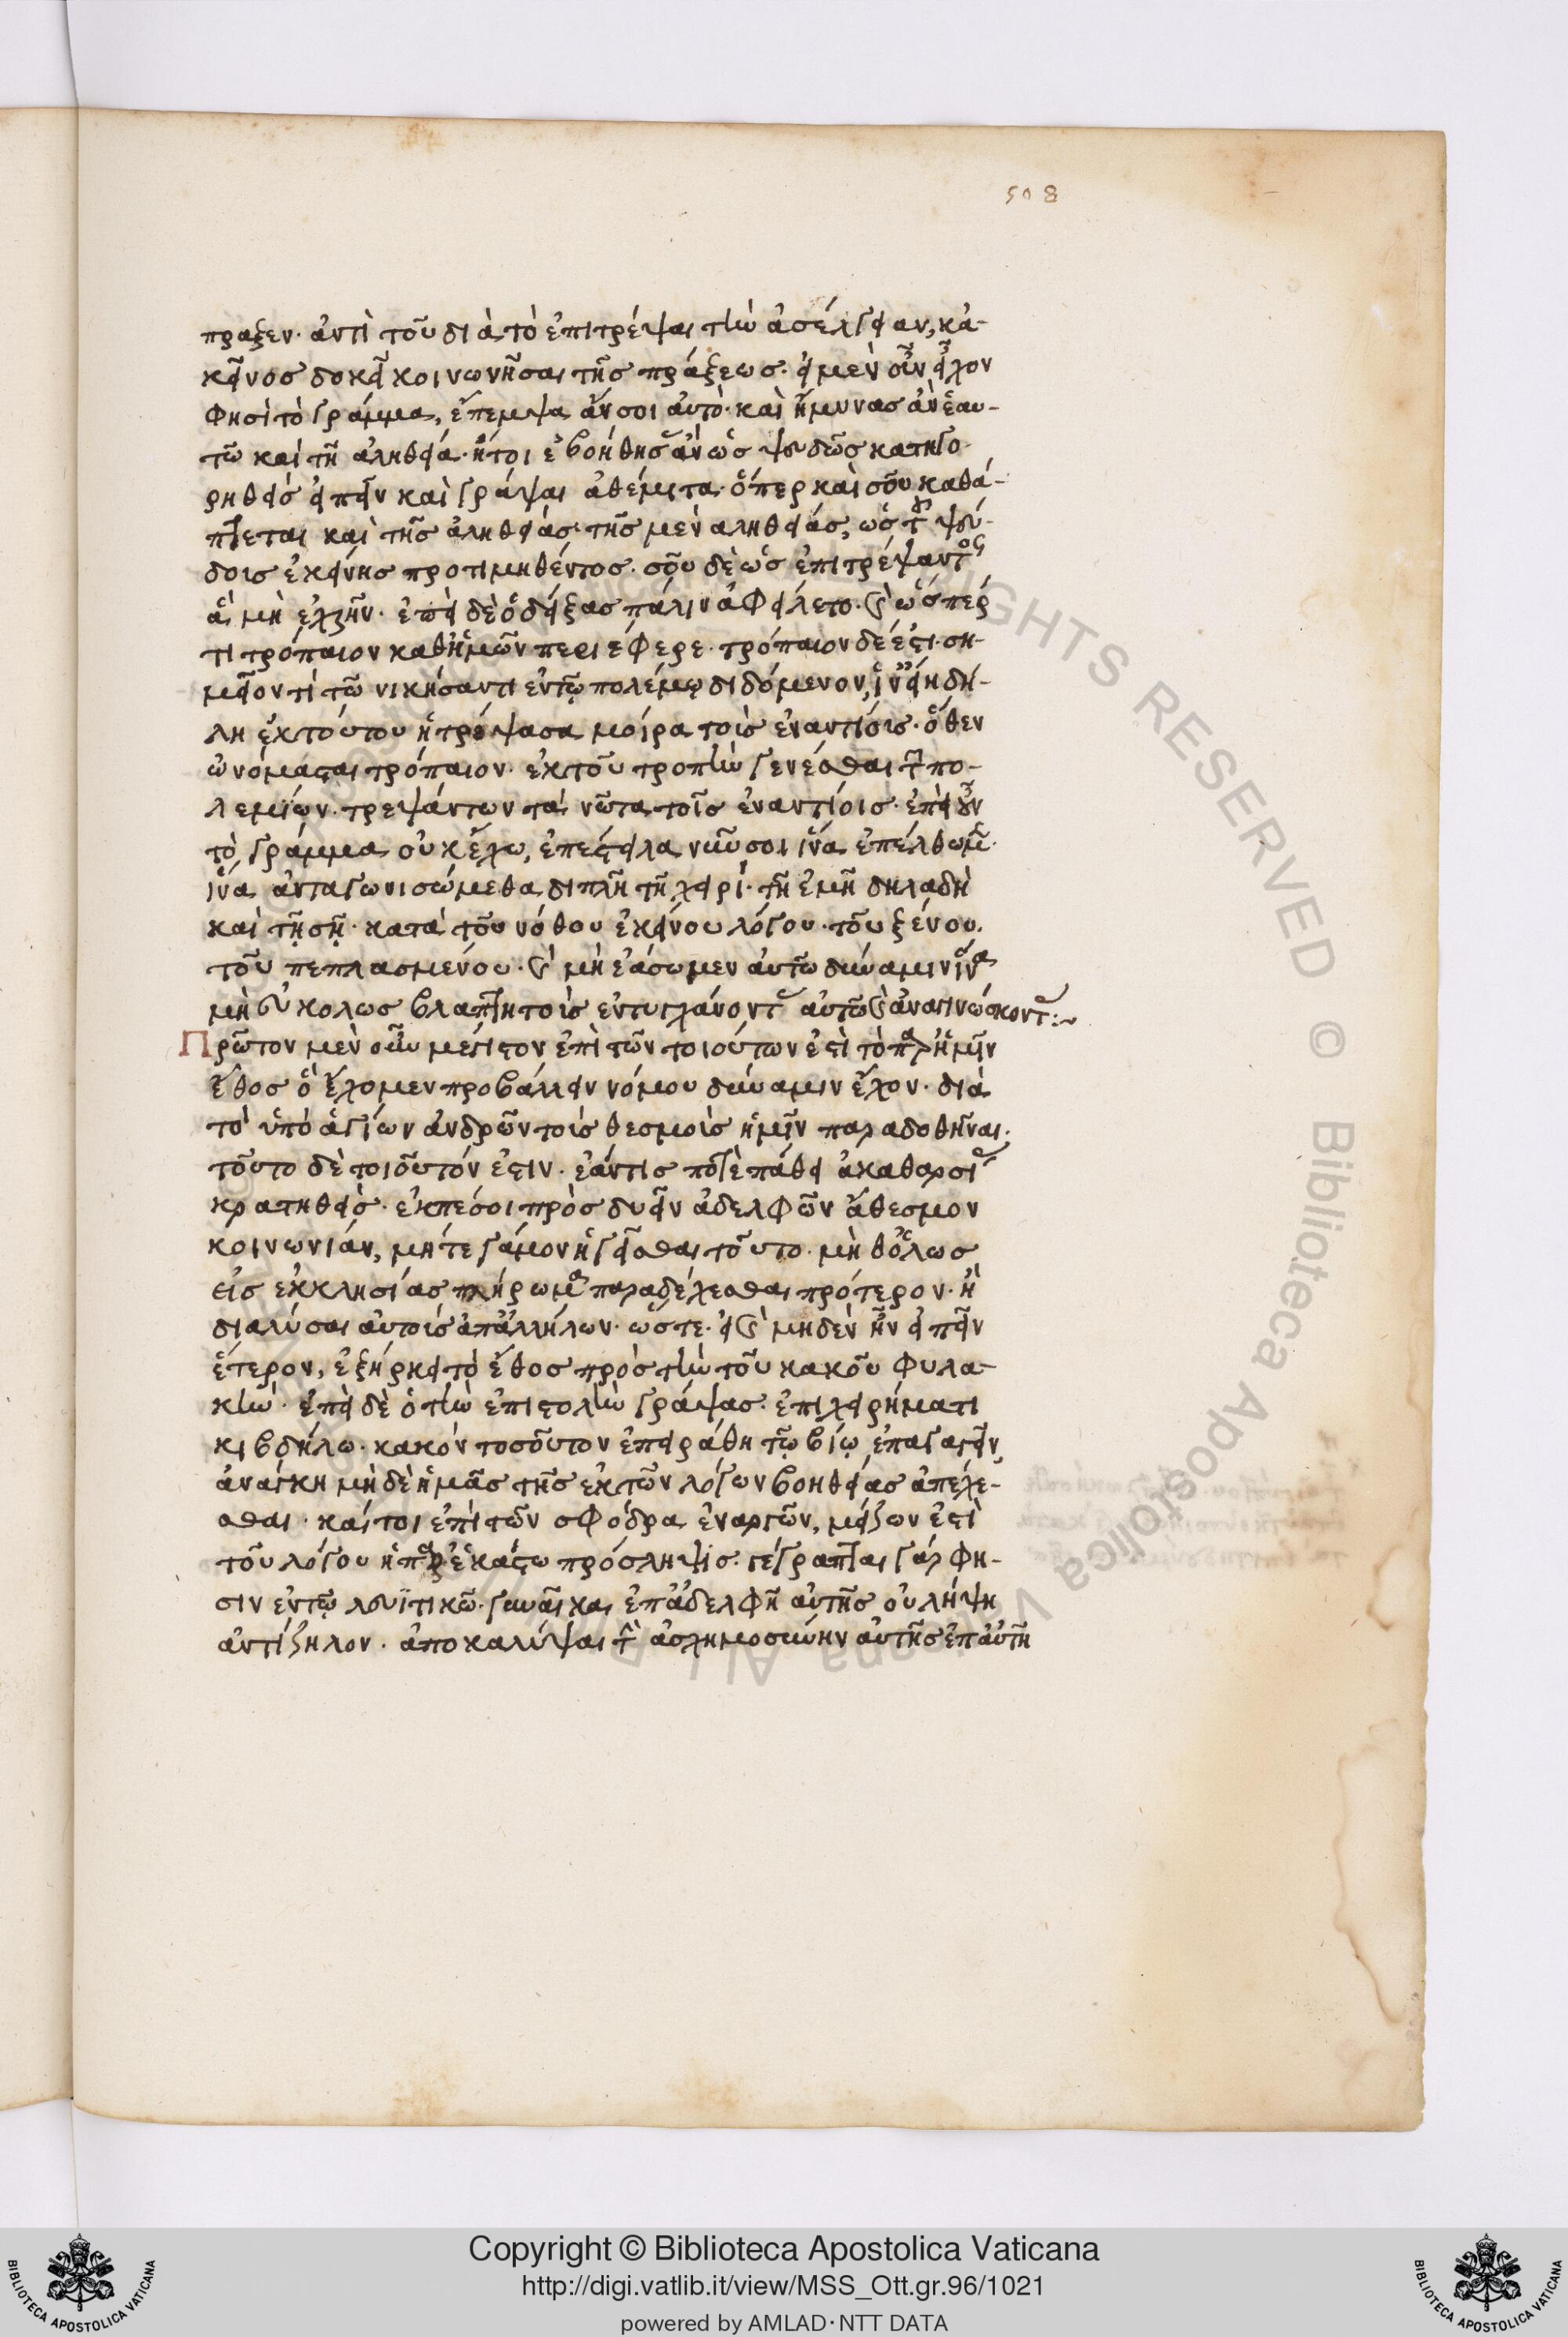 508
πραξεν· ἀντὶ τοῦ διὰ τὸ ἐπιτρέψαι τὴν ἀσέλγειαν, κἀ-
κεῖνος δοκεῖ κοινωνῆσαι τῆς πράξεως· εἰ μὲν οὖν εἶχον
φησὶ τὸ γράμμα, ἔπεμψα ἄν σοι αὐτό· καὶ ἤμυνας ἂν ἑαυ-
τῶ καὶ τῆ ἀληθεία· ἤτοι ἐβοήθησας ἂν ὡς ψευδῶς κατηγο-
ρηθεὶς εἰπεῖν καὶ γράψαι ἀθέμιτα· ὅπερ καὶ σοῦ καθά-
πτεται καὶ τῆς ἀληθείας· τῆς μὲν αληθείας, ὡς τοῦ ψεύ-
δους ἐκείνης προτιμηθέντος· σοῦ δὲ ὡς ἐπιτρέψαντος
ἃ μὴ ἐχρῆν· ἐπεὶ δὲ ὁ δείξας πάλιν ἀφείλετο· καὶ ὥσπερ
τι τρόπαιον καθ' ἡμῶν περιέφερε· τρόπαιον δέ ἐστι· ση-
μεῖον τί τῶ νικήσαντι ἐν τῷ πολέμῳ διδόμενον, ἵν' εἴη δή-
λη ἐκ τούτου ἡ τρέψασα μοίρα τοὺς ἐναντίους· ὅθεν
ὠνόμασται τρόπαιον· ἐκ τοῦ τροπὴν γενέσθαι τῶν πο-
λεμίων· τρεψάντων τὰ νῶτα τοῖς ἐναντίοις· ἐπεὶ οὖν
τὸ γράμμα οὐκ ἔχω, ἐπέστειλα νῦν σοι ἵνα ἐπέλθωμεν·
ἵνα ἀνταγωνισώμεθα διπλῆ τῆ χειρί· τῆ ἐμῆ δηλαδὴ
καὶ τῇ σῇ· κατὰ τοῦ νόθου ἐκείνου λόγου· τοῦ ξένου.
τοῦ πεπλασμένου· καὶ μὴ ἐάσωμεν αὐτῶ δύναμιν ἵνα
μὴ εὐκόλως βλάπτη τοὺς ἐντυγχάνοντας αὐτῶ καὶ ἀναγινώσκοντας:~
Πρῶτον μὲν οὖν μέγιστον ἐπὶ τῶν τοιούτων ἐστὶ τὸ παρ' ἡμῖν
ἔθος ὃ ἔχομεν προβάλλειν νόμου δύναμιν ἔχον· διὰ
τὸ ὑπὸ ἁγίων ἀνδρῶν τοὺς θεσμοὺς ἡμῖν παραδοθῆναι·
τοῦτο δὲ τοιοῦτόν ἐστιν· ἐάν τις ποτὲ πάθει ἀκαθαρσίας
κρατηθεὶς· ἐκπέσοι πρὸς δυεῖν ἀδελφῶν ἄθεσμον
κοινωνίαν, μήτε γάμον ἡγεῖσθαι τοῦτο· μὴ θ' ὅλως
εἰς ἐκκλησίας πλήρωμα παραδέχεσθαι πρότερον· ἢ
διαλύσαι αὐτοὺς ἀπ' ἀλλήλων· ὥστε· εἰ καὶ μηδὲν ἦν εἰπεῖν
ἕτερον, ἐξήρκει τὸ ἔθος πρὸς τὴν τοῦ κακοῦ φυλα-
κὴν· ἐπεὶ δὲ ὁ τὴν ἐπιστολὴν γράψας· ἐπιχειρήματι
κιβδήλω· κακὸν τοσοῦτον ἐπειράθη τῷ βίῳ ἐπαγαγεῖν,
ἀνάγκη μὴ δὲ ἡμᾶς τῆς ἐκ τῶν λόγων βοηθείας ἀπέχε-
σθαι· καίτοι ἐπὶ τῶν σφόδρα ἐναργῶν, μείζων ἐστὶ
τοῦ λόγου ἡ παρ' ἑκάστω πρόσληψις· γέγραπται γάρ φη-
σιν ἐν τῷ λευϊτικῶ· γυναῖκα ἐπ' ἀδελφῆ αὐτῆς οὐ λήψη
ἀντίζηλον· ἀποκαλύψαι τὴν ἀσχημοσύνην αὐτῆς ἐπ' αὐτῆ
Copyright © Biblioteca Apostolica Vaticana
http://digi.vatlib.it/view/MSS_Ott.gr.96/1021
powered by AMLAD·NTT DATA